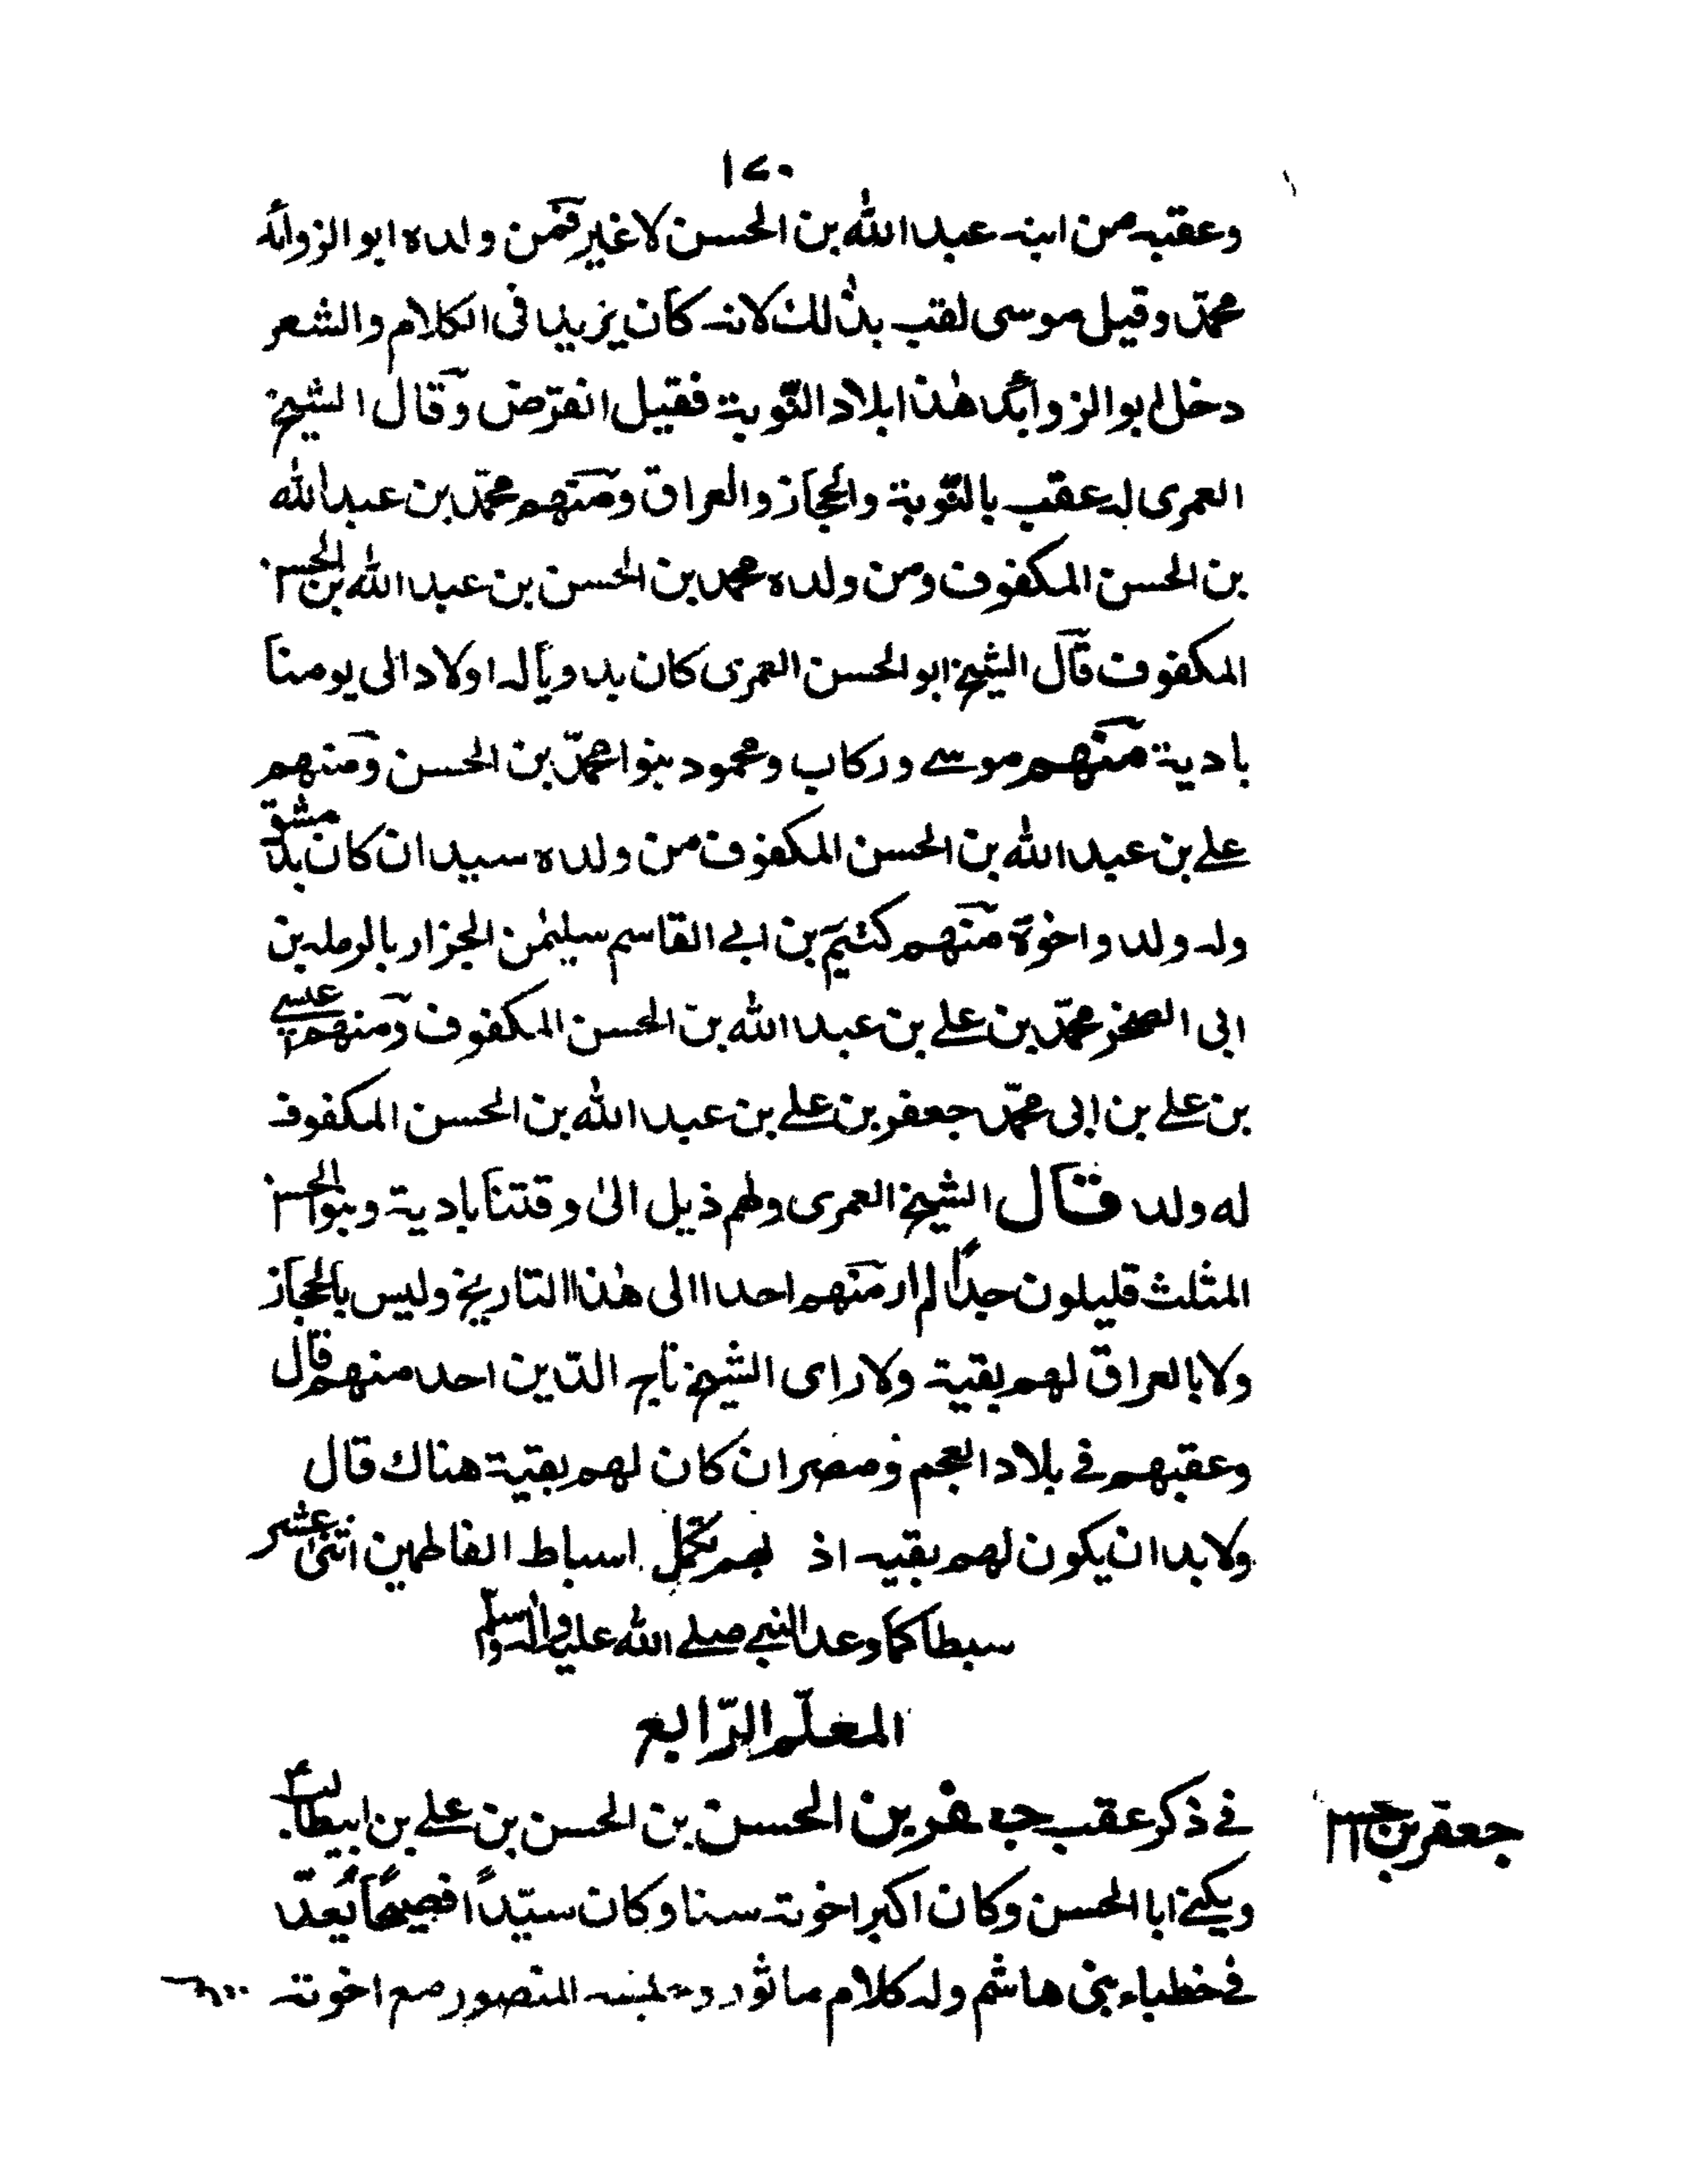 ١٧٠
وعقبه من ابنه عبد الله بن الحسن لا غير فمن ولده ابو الزوائد
محمّد وقيل موسى لقب بذلك لانه كان يزيد فى الكلام والشعر
دخل ابو الزوائد هذا بلاد النّوبة فقيل انقرض وقال الشيخ
العمرى له عقب بالنّوبة والحجاز والعراق ومنهم محمّد بن عبد الله
بن الحسن المكفوف ومن ولده محمد بن الحسن بن عبد الله بن الحسن
المكفوف قال الشيخ ابو الحسن العمرى كان بدويا له اولاد الى يومنا
بادية منهم موسے وركاب ومحمود بنوا محمّد بن الحسن ومنهم
علے بن عبد الله بن الحسن المكفوف من ولده سيدان كان بدمشق
وله ولد واخوة منهم كتيم بن ابے القاسم سليمٰن الجزار بالرمله بن
ابى الصخر محمّد بن علے بن عبد الله بن الحسن المكفوف ومنهم عيسے
بن علے بن ابى محمّد جعفر بن علے بن عبد الله بن الحسن المكفوف
له ولد قال الشيخ العمرى ولهم ذيل الىٰ وقتنا بادية وبنو الحسن
المثلث قليلون جدًا لم ار منهم احدا الى هٰذا التاريخ وليس بالحجاز
ولا بالعراق لهم بقية ولا راى الشيخ تاج الدّين احد منهم قال
وعقبهم فے بلاد العجم ومصر ان كان لهم بقية هناك قال
ولا بد ان يكون لهم بقيه اذ بهم تكمل اسباط الفاطمين اثنى عشر
سبطا كما وعد النبے صلے الله عليه واله وسلم
المعلم الرّابع
فے ذكر عقب جعفر بن الحسن بن الحسن بن علے بن ابيطالب
ويكنے ابا الحسن وكان اكبر اخوته سنا وكان سيّدًا فصيحًا يُعدّ
فے خطباء بنى هاشم وله كلام ماثور وحبسه المنصور مع اخوته
جعفر بن حسن